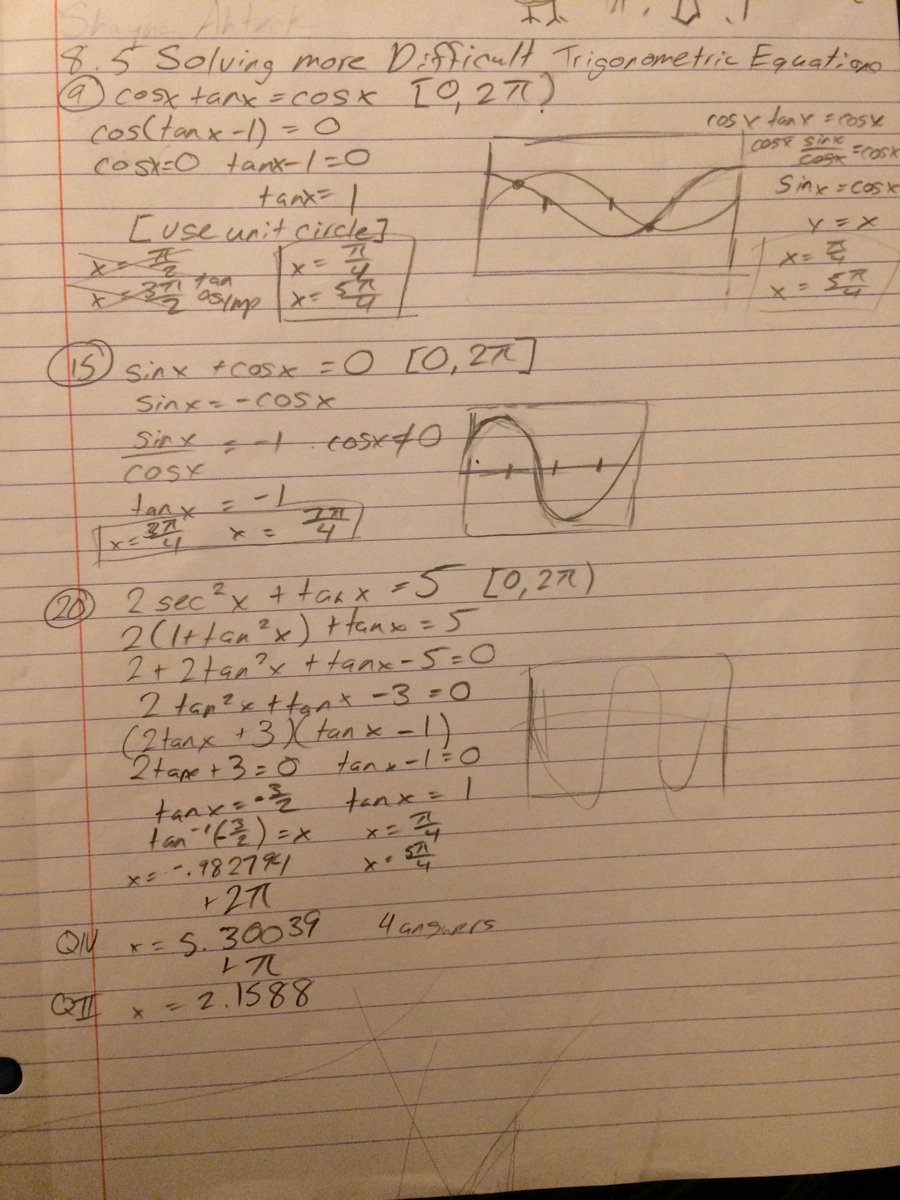 8.5 Solving more Difficult Trigonometric Equations
9 cosx tanx = cosx [0, 2π)
cos(tanx-1) = 0
cosx=0 tanx-1=0
tanx= 1
[use unit circle]
x = π/2
x = 3π/2 tan asymp
x = π/4
x = 5π/4
cosx tanx = cosx
cosx sinx/cosx = cosx
sinx = cosx
y = x
x = π/4
x = 5π/4
15 sinx + cosx = 0 [0, 2π]
sinx = -cosx
sinx/cosx = -1 cosx≠0
tanx = -1
x = 3π/4 x = 7π/4
20 2 sec²x + tanx = 5 [0, 2π)
2(1+tan²x) + tanx = 5
2 + 2tan²x + tanx - 5 = 0
2 tan²x + tanx - 3 = 0
(2tanx + 3)(tanx - 1)
2tanx + 3 = 0 tanx - 1 = 0
tanx = -3/2 tanx = 1
tan⁻¹(-3/2) = x x = π/4
x = -.982794 x = 5π/4
+2π
QIV x = 5.30039 4 answers
+π
QII x = 2.1588